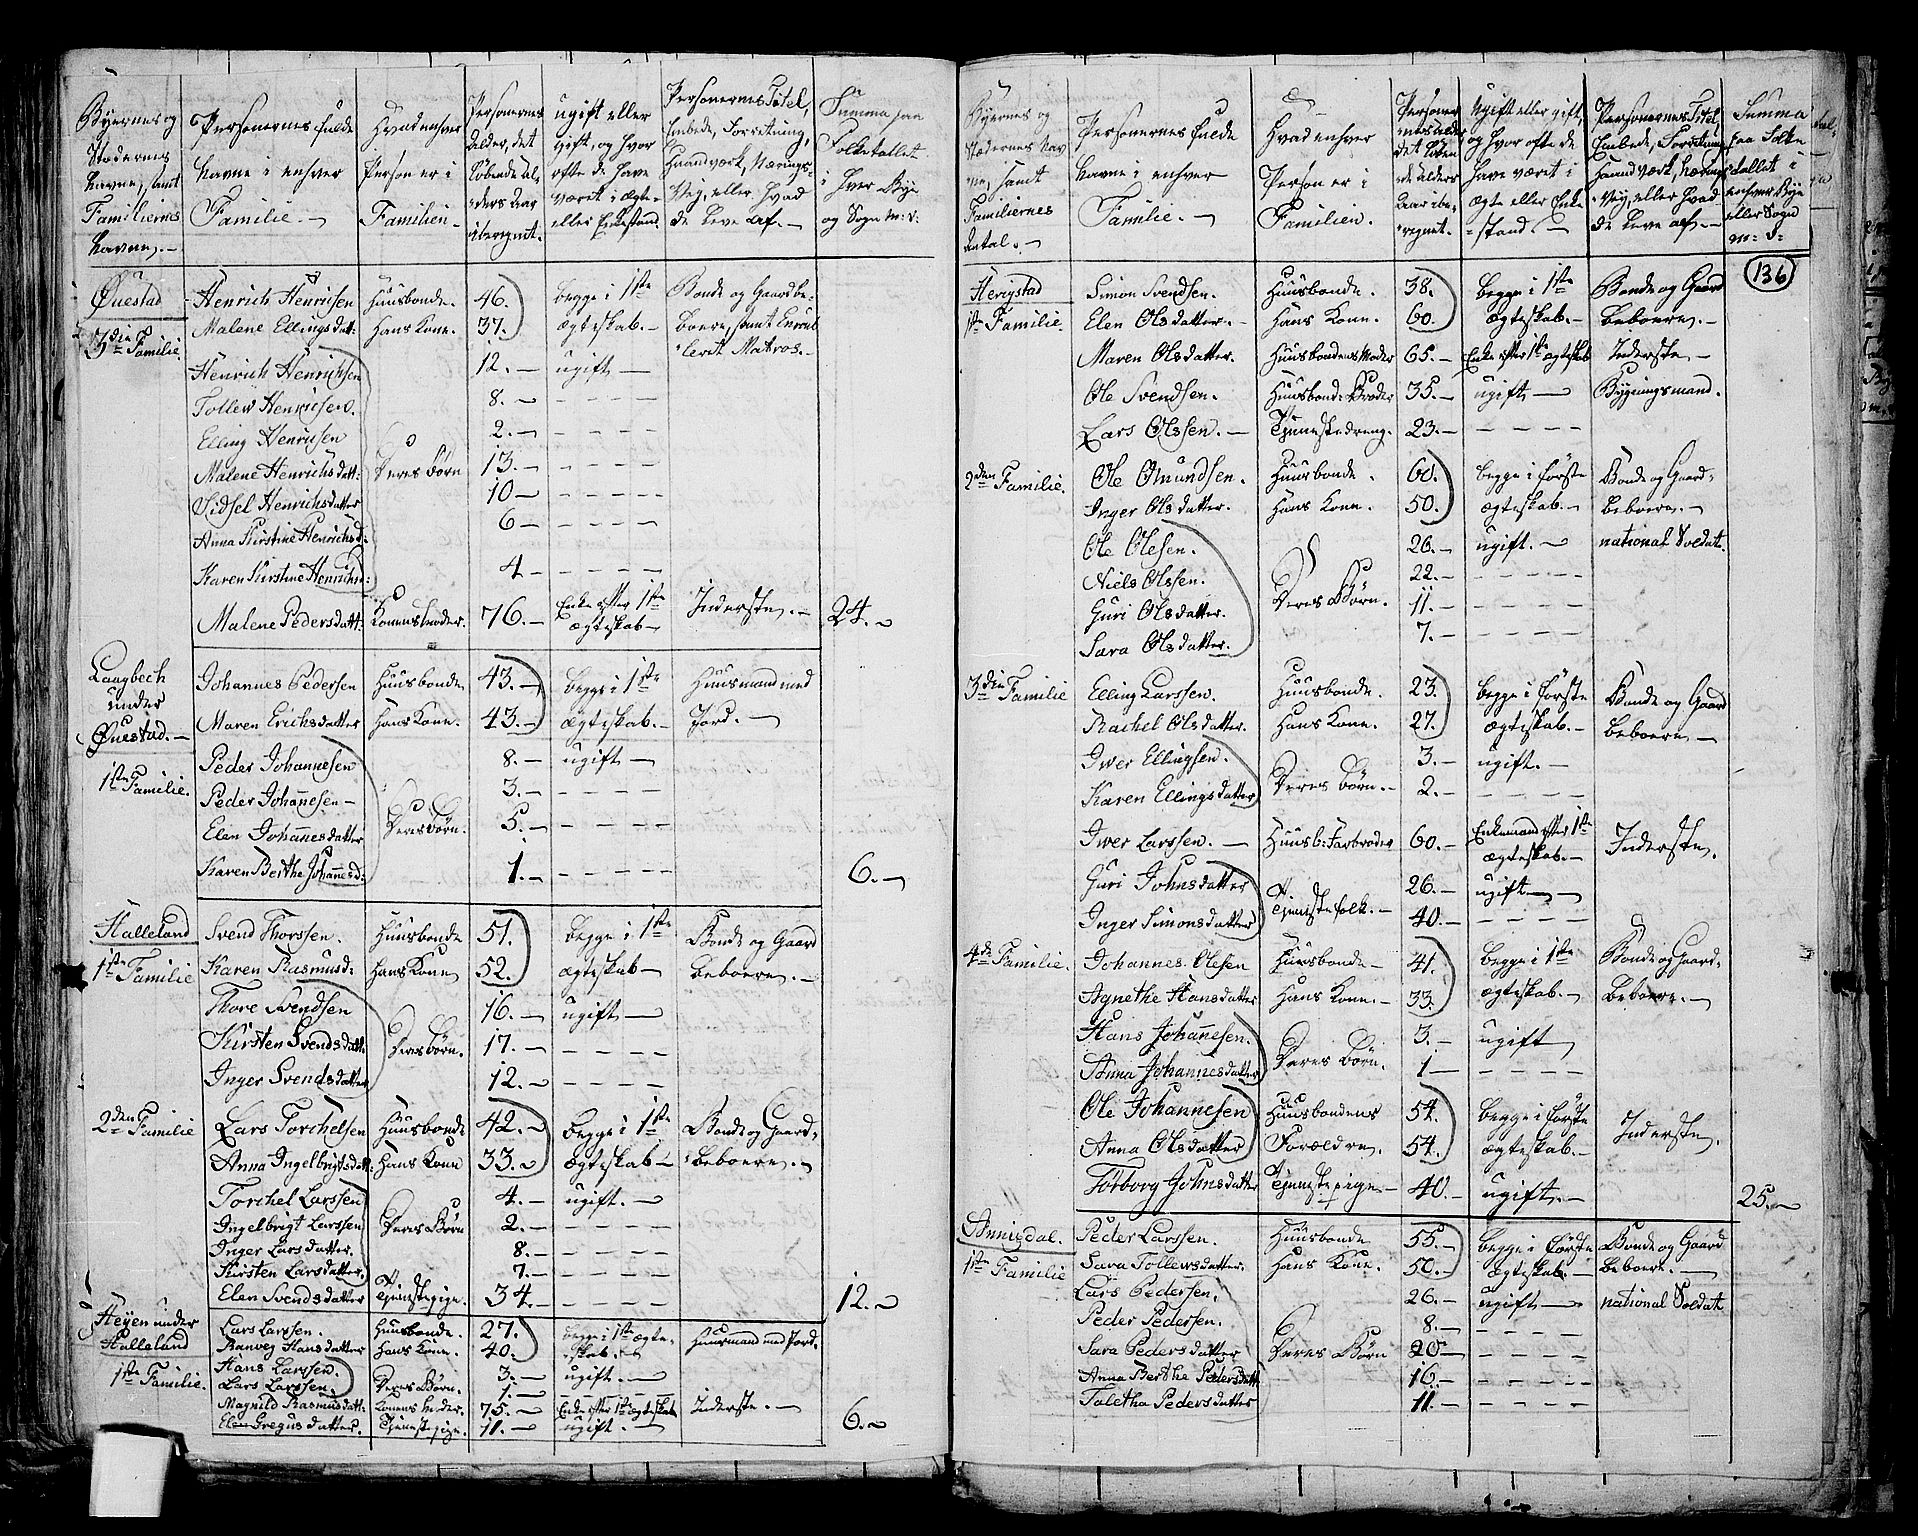 Byernes og Stædernes Navne, samt Familiernes Navne.
Personernes fulde Navne i enhver Familie.
Hvad enhver Person er i Familien.
Personernes Alder, det løbende Alders Aar iberegnet.
ugift eller gift, og hvor ofte de have været i Ægte- eller Enkestand.
Personernes Titel, Embede, Forretning, Haandværk, Nærings-Vej, eller hvad de leve af.
Summa paa Folketallet i hver Bye og Sogn m: v:
Øuestad Henrich Henrichsen Huusbonde 46. begge i 1ste Bonde og Gaardbe-
3die Familie. Malene Ellingsdatt: Hans Kone. 37. Ægteskab. boere, samt Enrul-
lerit Matros.
Henrich Henrichsen 12. ugift
Tollew Henrichsen. 8. - - - -
Elling Henrichsen 2. - - - -
Malene Henrichsdatt: Deres Børn 13. - - - -
Sidsel Henrichsdatter 10 - - - -
Anna Kirstine Henrichsd: 6 - - - -
Karen Kirstine Henrichsd: 4 - - - -
Malene Pedersdatt: Konens Moder. 76. Enke efter 1ste Ægteskab Inderste. 24.
Laagbech under Øuestad.
Johannes Pedersen Huusbonde 43. begge i 1ste Huusmand med
Maren Erichsdatter Hans Kone. 43. Ægteskab. Jord.
1ste Familie. Peder Johannesen 8. ugift
Peder Johannesen 3. - - - -
Elen Johannesdatter Deres børn. 5. - - - -
Karen Berthe Johannesd: 1. - - - - 6.
Halleland Svend Thorssen. Huusbonde 51. begge i 1ste Bonde og Gaard
1ste Familie Karen Rasmusd: Hans Kone 52. Ægteskab beboere.
Thore Svendsen 16. ugift
Kirsten Svendsdatt: Deres børn. 17. - - - -
Inger Svendsdatter 12. - - - -
2den Familie Lars Torchelsen Huusbonde 42. begge i 1ste Bonde og Gaard-
Anna Ingelbrigtsdatt: Hans Kone 33. Ægteskab beboere.
Torchel Larssen 4. ugift.
Ingelbrigt Larssen Deres Børn 2. - - - -
Inger Larsdatter. 8. - - - -
Kirsten Larsdatter. 7. - - - -
Elen Svendsdatter Tjenistepige. 34. - - - - 12.
Høyen under Halleland
Lars Larssen. Huusbonde. 27. begge i 1ste Ægte- Huusmand med Jord.
Ranveg Hansdatter Hans Kone. 40. skab.
1ste Familie. Hans Larssen. 3. ugift.
Lars Larssen. Deres Børn. 1. - - - -
Magnild Rasmusdatt: Konens Moder. 75. Enke efter 1ste Ægteskab Inderste.
Elen Gregusdatter. Tjenistepige. 11. ugift. 6.
Byernes og Stædernes Navne, samt Familiernes Antal.
Personernes fulde Navne i enhver Familie.
Hvad enhver Person er i Familien.
Personernes Alder det løbende Alders Aar iberegnet.
Ugift eller gift, og hvor ofte de have været i Ægte eller Enkestand.
Personernes Titel, Embede, Forretning, Haandværk, Nærings-Vej, eller hvad de leve af.
Summa paa Folketallet i enhver Bye eller Sogn m: v:
136
Herigstad Simon Svendsen. Huusbonde. 38. begge i 1ste Bonde og Gaard
1ste Familie. Elen Olsdatter. Hans Kone. 60. Ægteskab. beboere.
Maren Olsdatter. Huusbondens Moder 65. Enke efter 1ste Ægteskab Inderste
Ole Svendsen. Huusbonds: Broder 35. ugift Bygningsmand.
Lars Olssen. Tjenistedreng. 23. - - - -
2den Familie. Ole Omundsen. Huusbonde. 60. begge i første Bonde og Gaard-
Inger Olsdatter. Hans Kone. 50. Ægteskab. beboere.
Ole Olesen. 26. ugift. national Soldat.
Niels Olssen. Deres Børn. 22. - - - -
Guri Olsdatter. 11. - - - -
Sara Olsdatter. 7. - - - -
3die Familie Elling Larssen. Huusbonde. 23. begge i første Bonde og Gaard
Rachel Olsdatter. Hans Kone. 27. Ægteskab. beboere.
Iwer Ellingsen. 3. ugift.
Karen Ellingsdatter Deres børn. 2. - - - -
Iwer Larssen. Huusb: Farbroder 60. Enkemand efter 1ste Ægteskab. Inderste.
Guri Johnsdatter 26. ugift
Inger Simonsdatter Tjenistefolk. 40. - - - -
4de Familie. Johannes Olesen Huusbonde 41. begge i 1ste Bonde og Gaard-
Agnethe Hansdatter Hans Kone. 33. Ægteskab. beboere.
Hans Johannesen. 3. ugift
Anna Johannesdatter Deres børn. 1 - - - -
Ole Johannesen Huusbondens 54. begge i første Inderste.
Anna Olsdatter Forældre. 54. Ægteskab.
Torborg Johnsdatter Tjenistepige. 40. ugift. 25.
Anniqdal. Peder Larssen. Huusbonde 55. begge i første Bonde og Gaard
1ste Familie Sara Tollewsdatter. Hans Kone. 50. Ægteskab. beboere.
Lars Pedersen. 26. ugift national Soldat
Peder Pedersen. 8. - - - -
Sara Pedersdatter Deres Børn 20 - - - -
Anna Berthe Pedersdatt: 16. - - - -
Taletha Pedersdatter 11. - - - -